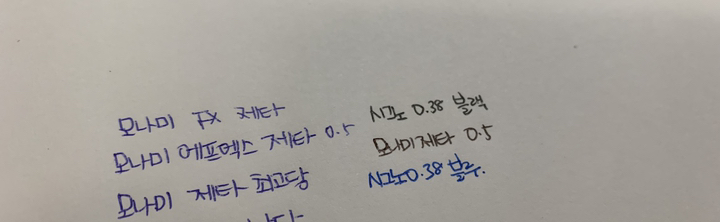 모나미 FX 제타
모나미 에프엑스 제타 0.5
모나미 제타 최고당
시그노 0.38 블랙
모나미제타 0.5
시그노0.38 블루.